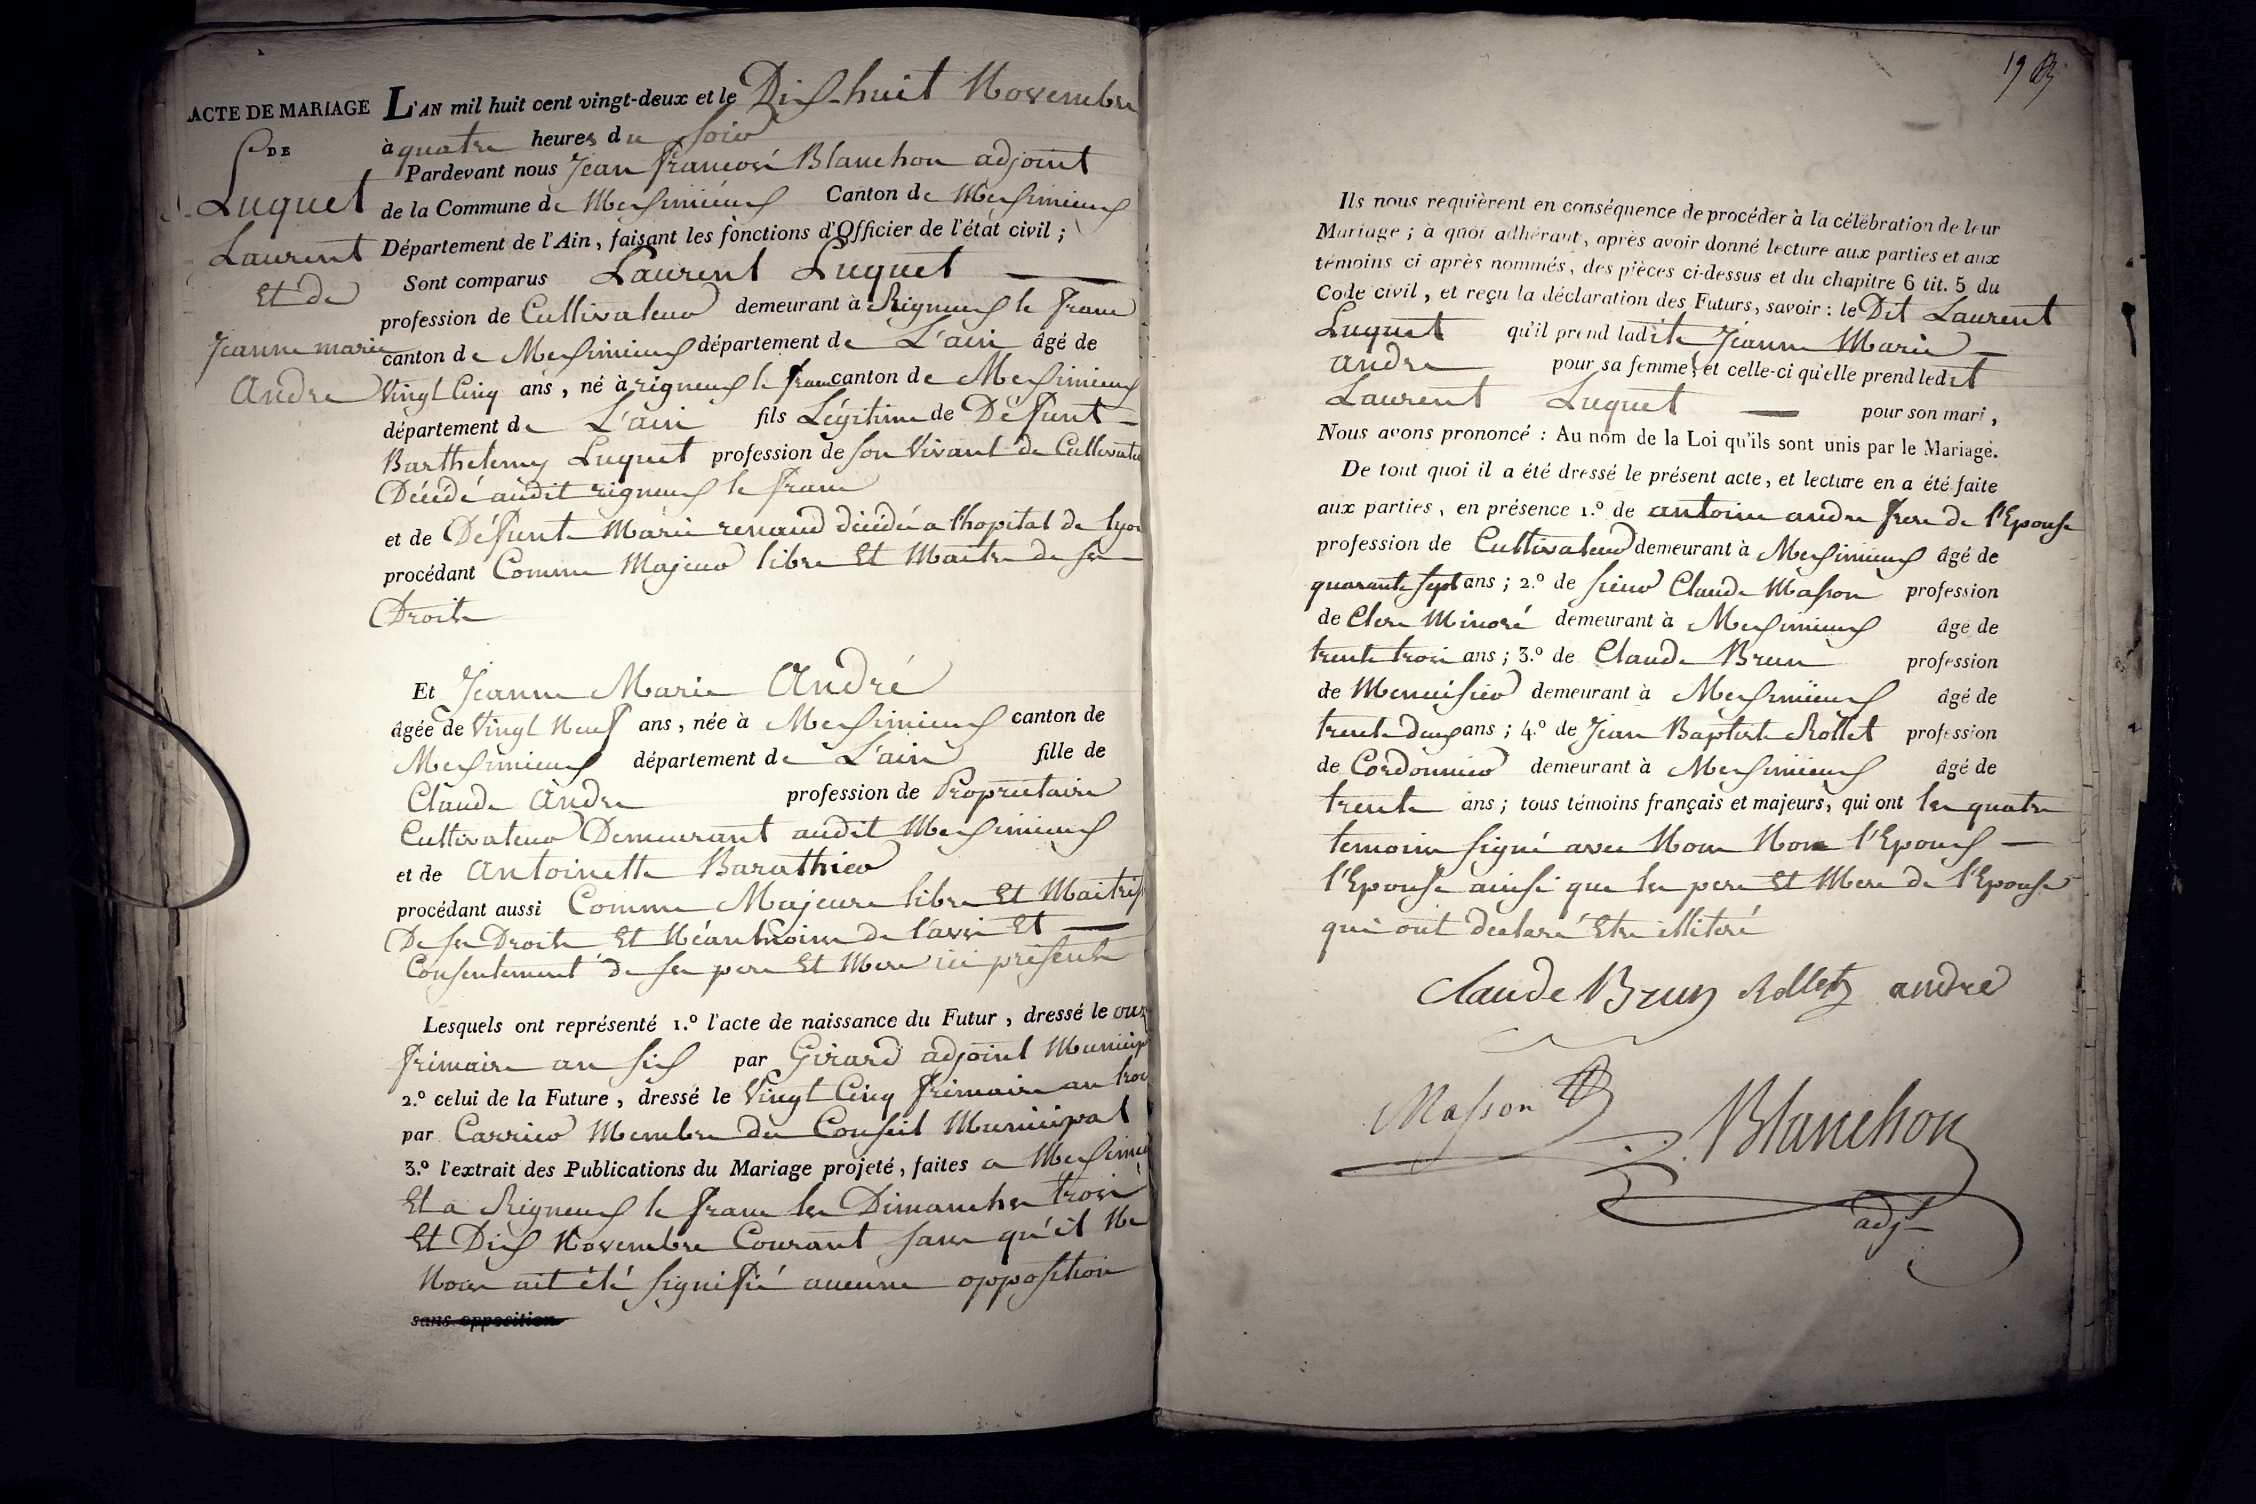 ACTE DE MARIAGE
DE
Luquet
Laurent
Et de
Jeanne marie
André
L'AN mil huit cent vingt-deux et le Dix-huit Novembre
à quatre heures du soir
Pardevant nous Jean françois Blanchon adjoint
de la Commune de Meximieux Canton de Meximieux
Département de l'Ain, faisant les fonctions d'Officier de l'état civil;
Sont comparus Laurent Luquet
profession de Cultivateur demeurant à Rigneux le franc
canton de Meximieux département de L'ain âgé de
Vingt Cinq ans, né à rigneux le franc canton de Meximieux
département de L'ain fils Légitime de Défunt
Barthelemy Luquet profession de son Vivant de Cultivateur
Décédé audit rigneux le franc
et de Défunte Marie renaud décédée a l'hopital de lyon
procédant Comme Majeur libre Et Maitre de ses
Droits
Et Jeanne Marie André
âgée de Vingt Neuf ans, née à Meximieux canton de
Meximieux département de L'ain fille de
Claude André profession de Propriétaire
Cultivateur Demeurant audit Meximieux
et de Antoinette Barathier
procédant aussi Comme Majeure libre Et Maitresse
De ses Droits Et Néantmoins de l'avis Et
Consentement de ses pere Et Mere ici présents
Lesquels ont représenté 1.º l'acte de naissance du Futur, dressé le onze
frimaire an six par Girard adjoint Municipal
2.º celui de la Future, dressé le Vingt Cinq frimaire an trois
par Carrier Membre du Conseil Municipal
3.º l'extrait des Publications du Mariage projeté, faites a Meximieux
Et a Rigneux le franc les Dimanches trois
Et Dix Novembre Courant sans qu'il Ne
Nous ait été signifié aucune opposition
sans opposition
19
Ils nous requièrent en conséquence de procéder à la célébration de leur
Mariage; à quoi adhérant, après avoir donné lecture aux parties et aux
témoins ci après nommés, des pièces ci-dessus et du chapitre 6 tit. 5 du
Code civil, et reçu la déclaration des Futurs, savoir: le Dit Laurent
Luquet qu'il prend ladite Jeanne Marie
andré pour sa femme; et celle-ci qu'elle prend ledit
Laurent Luquet pour son mari,
Nous avons prononcé: Au nom de la Loi qu'ils sont unis par le Mariage.
De tout quoi il a été dressé le présent acte, et lecture en a été faite
aux parties, en présence 1.º de antoine andré frere de l'Epouse
profession de Cultivateur demeurant à Meximieux âgé de
quarante sept ans; 2.º de sieur Claude Masson profession
de Clerc Minoré demeurant à Meximieux âgé de
trente trois ans; 3.º de Claude Brun profession
de Menuisier demeurant à Meximieux âgé de
trente deux ans; 4.º de Jean Baptiste Rollet profession
de Cordonnier demeurant à Meximieux âgé de
trente ans; tous témoins français et majeurs, qui ont les quatre
temoins signé avec Nous Non l'Epoux
l'Epouse ainsi que les pere Et Mere de l'Epouse
qui ont declaré Etre illiteré
Claude Brun Rollet andre
Masson
Blanchon
adjt